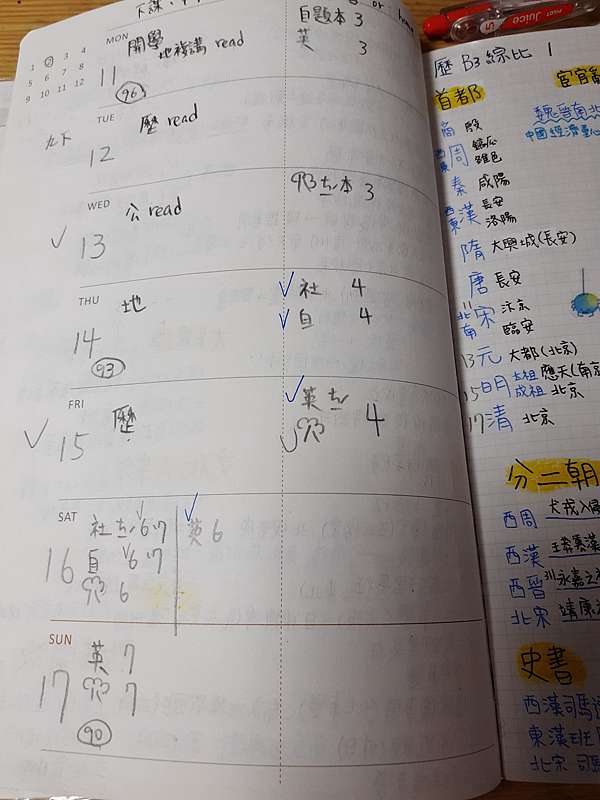 下課、
MON
11
開學
地複講 read
96
自題本 3
英 3
TUE
12
歷 read
九下
WED
13
公 read
本 3
THU
14
地
93
社 4
自 4
FRI
15
歷
英
4
SAT
16
社 6 7
自 6 7
6
英 6
SUN
17
英 7
7
90
1 2 3 4
5 6 7 8
9 10 11 12
Juice
歷 B3 綜比 1
首都
商 殷
西東周 鎬京 雒邑
秦 咸陽
西東漢 長安 洛陽
隋 大興城(長安)
唐 長安
北南宋 汴京 臨安
13元 大都(北京)
15明 太祖 應天(南京
成祖 北京
17清 北京
魏晉南北
中國經濟重心
分二朝
西周 犬戎入
西漢 王莽篡漢
西晉 311永嘉之
北宋 靖康
史書
西漢司馬
東漢班
北宋 司